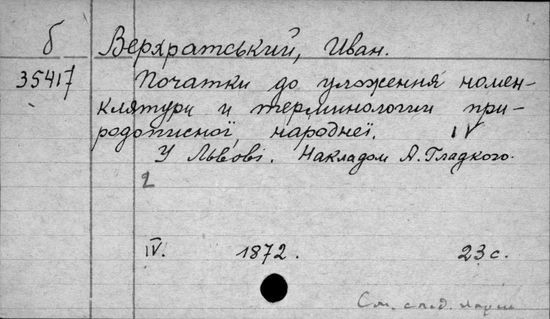 б
Верхратський, Иван.
35417
Початки до уложення номен-
клятури и терминологии при-
родописноі, народнеі. IV
У Львові. Накладом А. Гладкого.
2
IV. 1872. 23 с.
См. след. карт